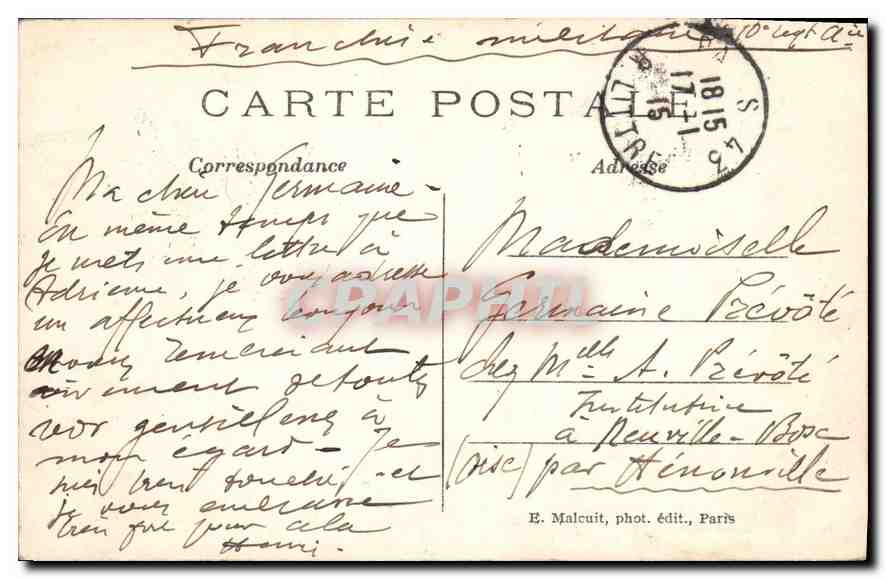 Franchise militaire 10e regt Aie
PARIS 43
18 15
17 - 1
15
R. LITTRE
CARTE POSTALE
Correspondance
Adresse
Ma chère Germaine -
En même temps que
je mets une lettre à
Adrienne, je vous adresse
un affectueux bonjour
en vous remerciant
vivement de toutes
vos gentillesses à
mon égard - Je
suis bien touché - et
je vous embrasse
bien fort pour cela
Henri -
Mademoiselle
Germaine Prévôté
chez Mlle A. Prévôté
Institutrice
à Neuville-Bosc
(Oise) par Hénonville
CPAPHIL
E. Malcuit, phot. édit., Paris